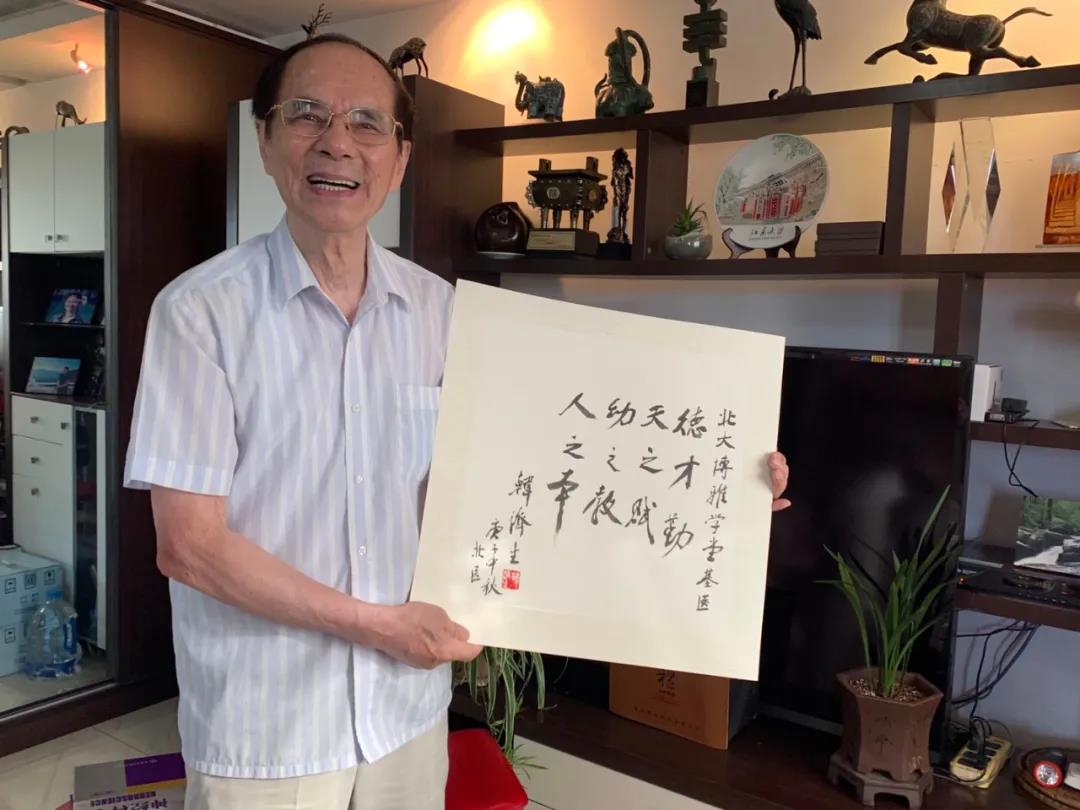 北大博雅学堂基医
德才勤
天之赋
幼之教
人之本
韓濟生
庚子年秋
北医
NEUROSCIENCE